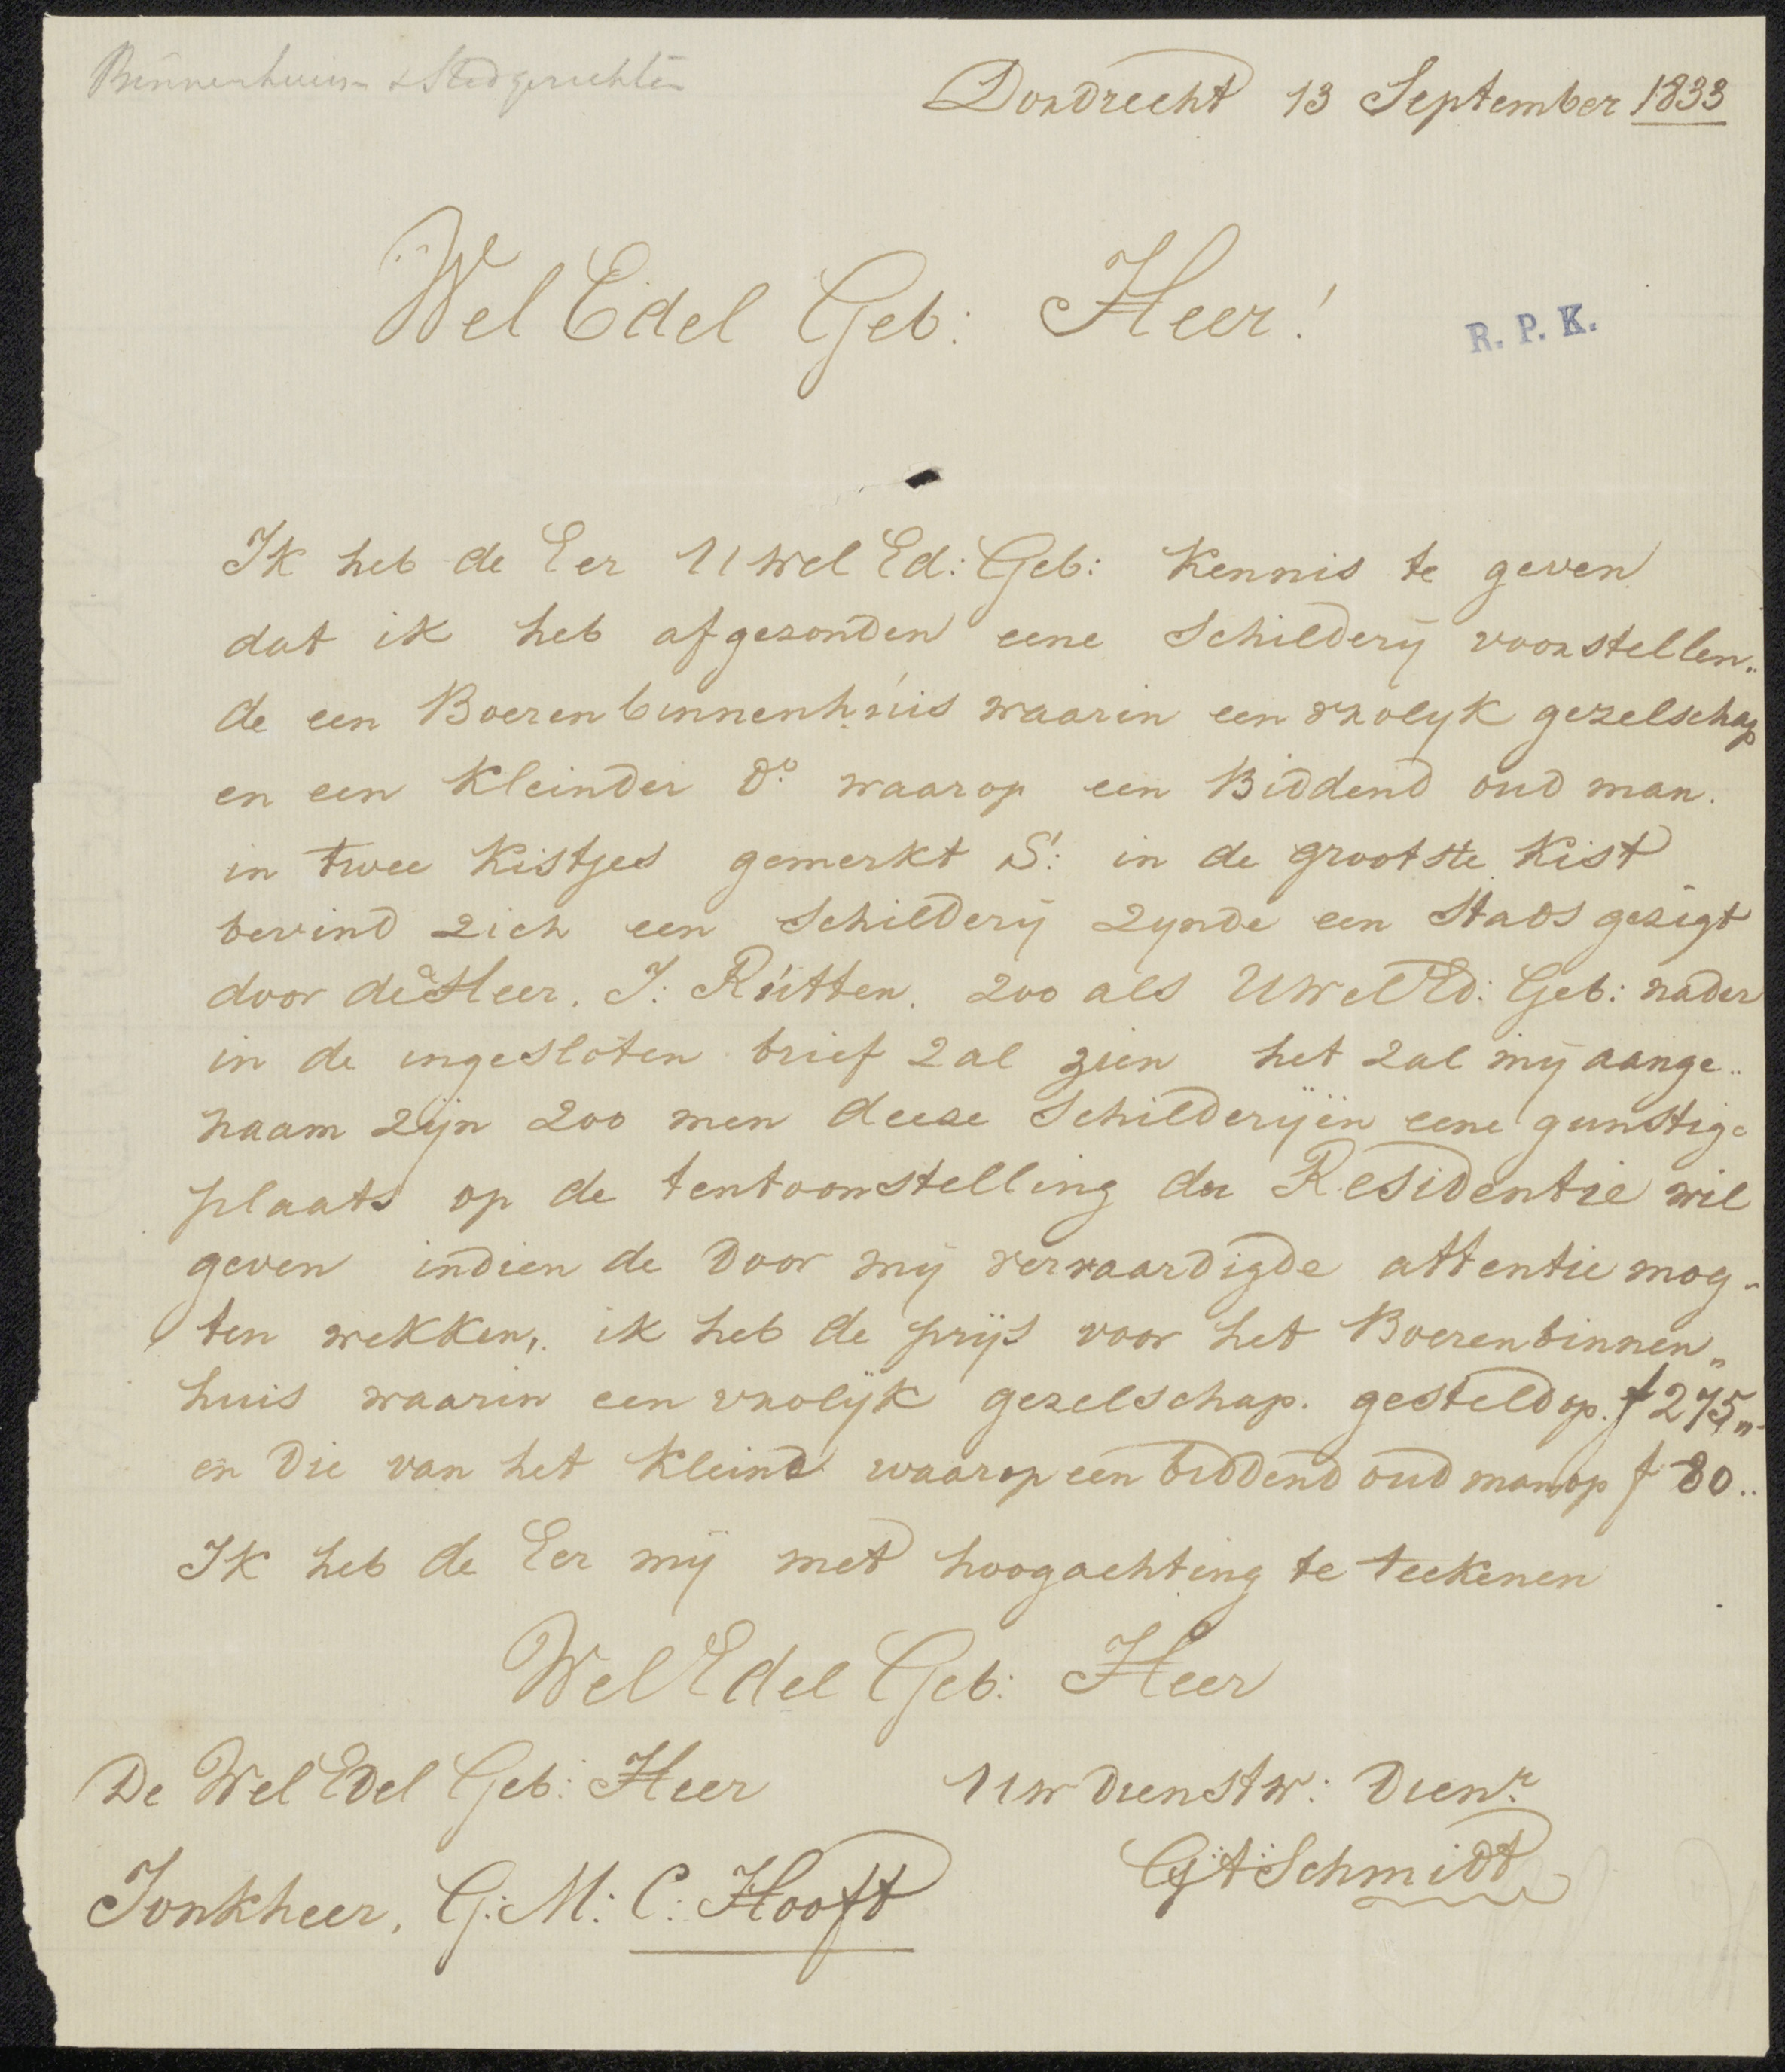 Binnenhuis & Stedgezichten
Dordrecht 13 September 1833
Wel Edel Geb: Heer!
R. P. K.
Ik heb de Eer UWel Ed: Geb: Kennis te geven
dat ik heb afgezonden eene Schilderij voorstellen„
de een Boerenbinnenhuis waarin een vrolyk gezelschap
en een Kleinder do. waarop een Biddend oud man.
in twee Kistjes gemerkt S: in de grootste Kist
bevind zich een Schilderij zynde een Stads gezigt
door de Heer. J: Rutten. zoo als UWelEd: Geb: nader
in de ingesloten brief zal zien het zal mij aange„
naam zijn zoo men deeze Schilderijen eene gunstige
plaats op de tentoonstelling der Residentie wil
geven indien de door mij vervaardigde attentie mog„
ten wekken, ik heb de prijs voor het Boerenbinnen„
huis waarin een vrolijk gezelschap. gesteld op. f 275„
en die van het Kleind waarop een biddend oud man op f 80..
Ik heb de Eer mij met hoogachting te teekenen
Wel Edel Geb: Heer
De Wel Edel Geb: Heer Uw Dienstw: Dienr.
Jonkheer, G: M: C: Hooft Schmidt